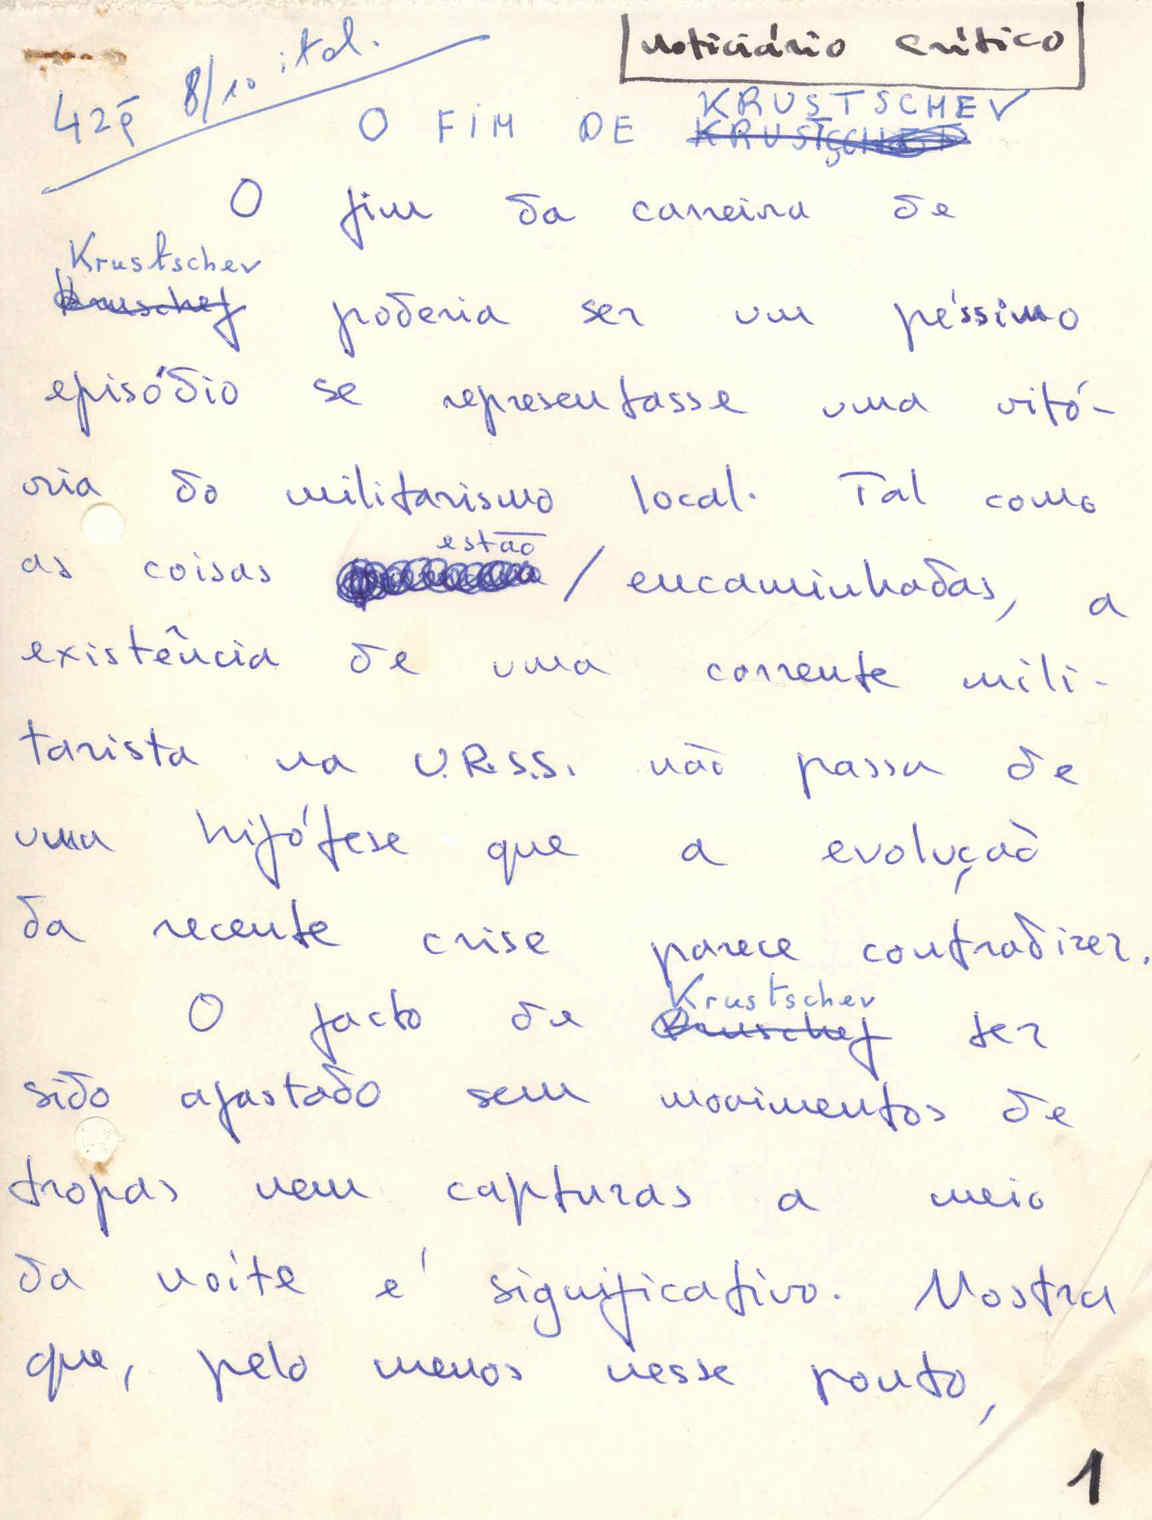 noticiário crítico
42p 8/10 ital.
O FIM DE KRUSTSCHEV
O fim da carreira de
Krustschev poderia ser um péssimo
episódio se representasse uma vitó-
ria do militarismo local. Tal como
as coisas estão / encaminhadas, a
existência de uma corrente mili-
tarista na U.R.S.S. não passa de
uma hipótese que a evolução
da recente crise parece contradizer.
O facto de Krustschev ter
sido afastado sem movimentos de
tropas nem capturas a meio
da noite é significativo. Mostra
que, pelo menos nesse ponto,
1